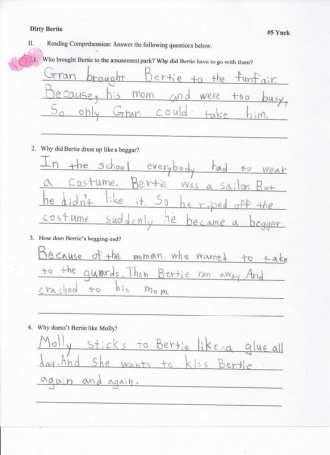 Dirty Bertie
#5 Yuck
II. Reading Comprehension: Answer the following questions below.
1. Who brought Bertie to the amusement park? Why did Bertie have to go with them?
Gran brought Bertie to the funfair.
Because, his mom and were too busy,
So only Gran could take him.
2. Why did Bertie dress up like a beggar?
In the school everybody had to wear
a costume. Bertie was a sailor. But
he didn't like it. So he riped off the
costume suddenly he became a beggar
3. How does Bertie's begging end?
Because of the woman who wanted to take
to the guards. Then Bertie ran away. And
crashed to his mom
4. Why doesn't Bertie like Molly?
Molly sticks to Bertie like a glue all
day. And She wants to kiss Bertie
again and again.